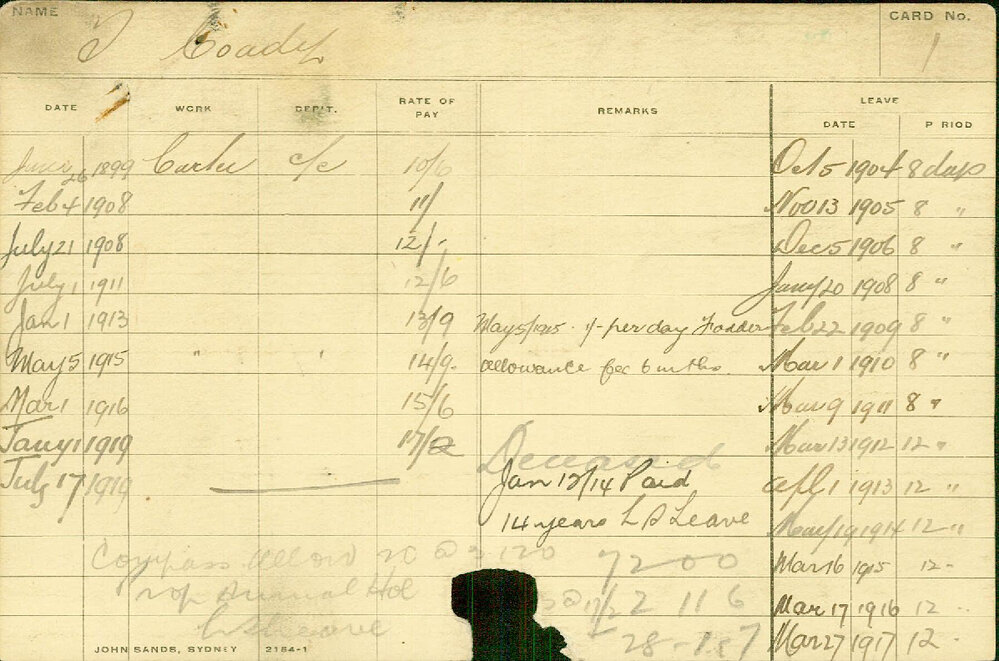 NAME
CARD No.
J Coady
1
DATE WORK DEP'T. RATE OF PAY REMARKS LEAVE
DATE P RIOD
26 1899 Carter c/c 10/6 Oct 5 1904 8 days
Feb 4 1908 11/ Nov 13 1905 8 "
July 21 1908 12/- Dec 5 1906 8 "
July 1 1911 12/6 Jany 20 1908 8 "
Jan 1 1913 13/9 May 5/1915 1/- per day Fodder Feb 22 1909 8 "
May 5 1915 " " 14/9 allowance for 6 mths. Mar 1 1910 8 "
Mar 1 1916 15/6 Mar 9 1911 8 "
Jany 1 1919 17/2 Deceased Mar 13 1912 12 "
July 17 1919 Jan 12/14 Paid Apl 1 1913 12 "
14 years L S Leave May 19 1914 12 "
Compass allow 20 @ 2 120 7 2 0 0 Mar 16 1915 12 -
Annual Hol @ 17/2 2 11 6 Mar 17 1916 12 -
leave 28 - Mar 27 1917 12 -
JOHN SANDS, SYDNEY 2184-1